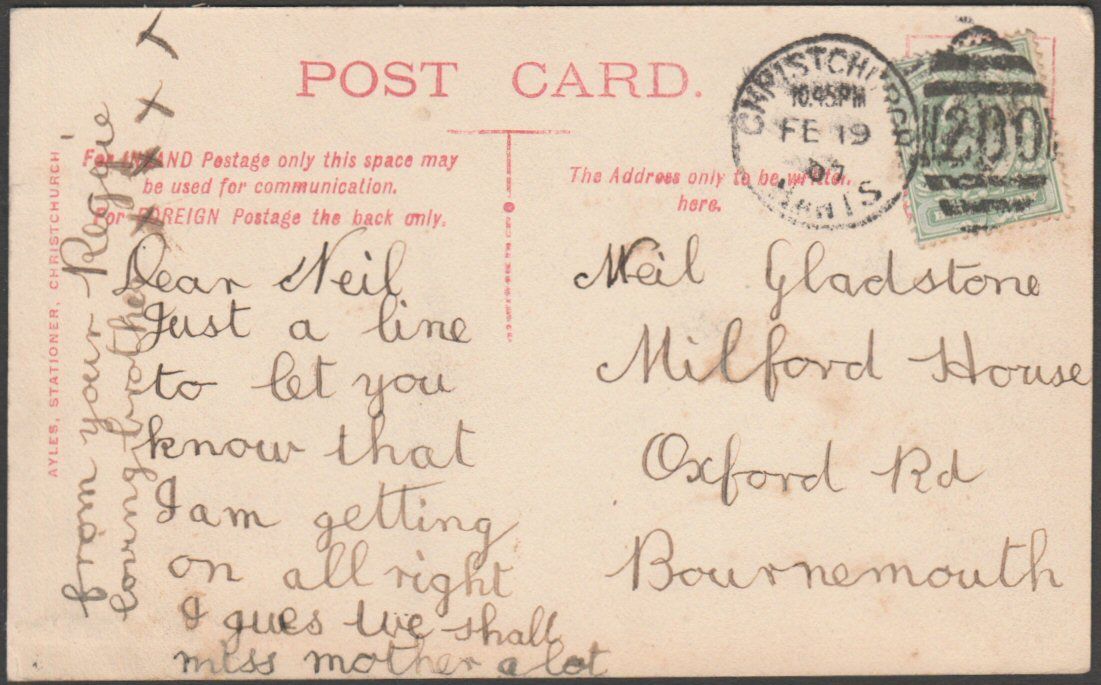 POST CARD.
For INLAND Postage only this space may
be used for communication.
For FOREIGN Postage the back only.
The Address only to be written
here.
AYLES, STATIONER, CHRISTCHURCH
CHRISTCHURCH
10.45PM
FE 19
07
HANTS
200
Dear Neil
Just a line
to let you
know that
I am getting
on all right
I gues we shall
miss mother a lot
from your Reggie
loving brother
x x x x x
Neil Gladstone
Milford House
Oxford Rd
Bournemouth